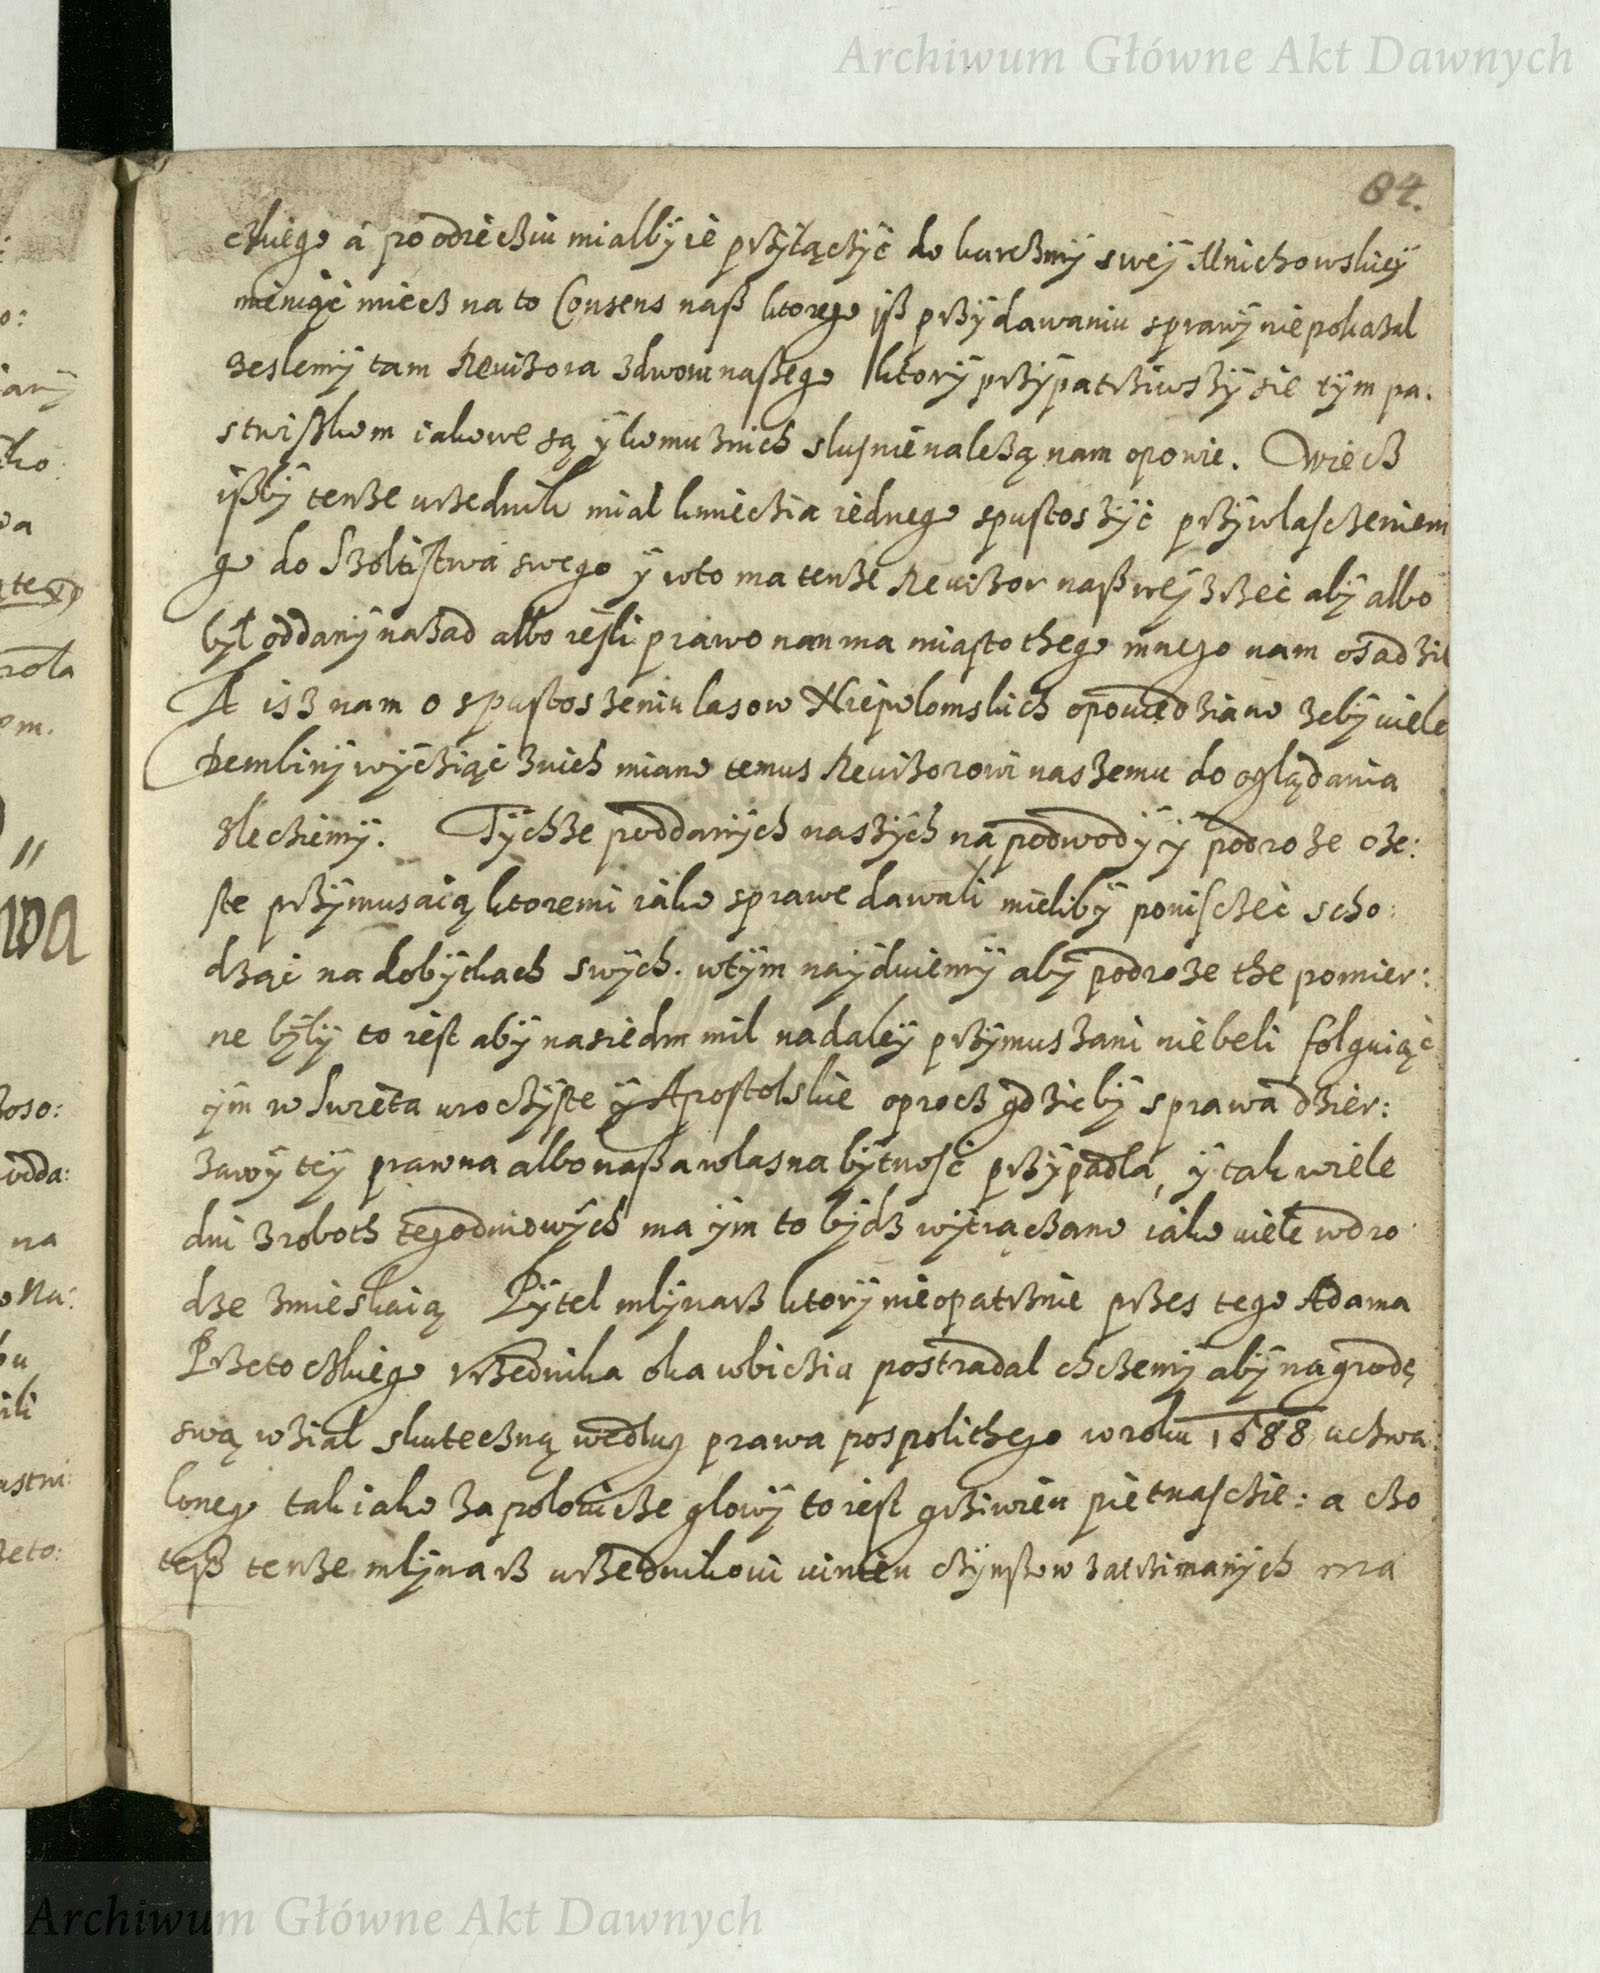 Archiwum Główne Akt Dawnych
84.
czkiego á po odiećziu mialby ie przyłączyć do karczmy swey Mnichowskiey
mieniąć miecz na to Consens nasz ktorego isz przy dawaniu sprawy nie pokazal
zeslemy tam Revizora z dworu naszego ktory przypatrziwszy sie tym pa:
stwiskom iakowe są y komu znich slusnie należą nam opowie. Więcz
iszby tenże urzednik mial kmieczia iednego spustoszyć przywlasczeniem
go do Szoltistwa swego y wto ma tenze Revizor nasz weyzrzeć aby albo
był oddany nazad albo iesli prawo nan ma miasto thego innego nam osadzil
A isz nam o spustoszeniu lasow Niepolomskich opowiedziano zeby wiele
dembiny wycziąć znich miano temus Revizorowi naszemu do oglądania
zlecziemy. Tychze poddanych naszych na podwody y podroze cze:
ste przymusaią ktoremi iako sprawe dawali mieliby poniszczeć scho:
dząć na dobytkach swych. wtym nayduiemy aby podroze the pomier:
ne były to iest aby na siedm mil nadaley przymuszani niebeli folguiąć
ym w Swieta uroczyste y Apostolskie oprocz gdzieby sprawa dzier:
zawy tey prawna albo nasza wlasna bytność przypadla, y tak wiele
dni z roboth tegodniowych ma ym to bydz wytrączano iako wiele wdro
dze zmieskaią Pytel mlynarz ktory nieopatrznie przes tego Adama
Przetoczkiego vrzednika oka wbiczia postradal chczemy aby nagrodę
swą wzial skuteczną wedlug prawa pospolithego w roku 1588 uchwa:
lonego tak iako za polowicze glowy to iest grziwien pietnasczie: a czo
tesz tenze mlynarz urzednikowi winien czynszow zatrzimanych ma
Archiwum Główne Akt Dawnych